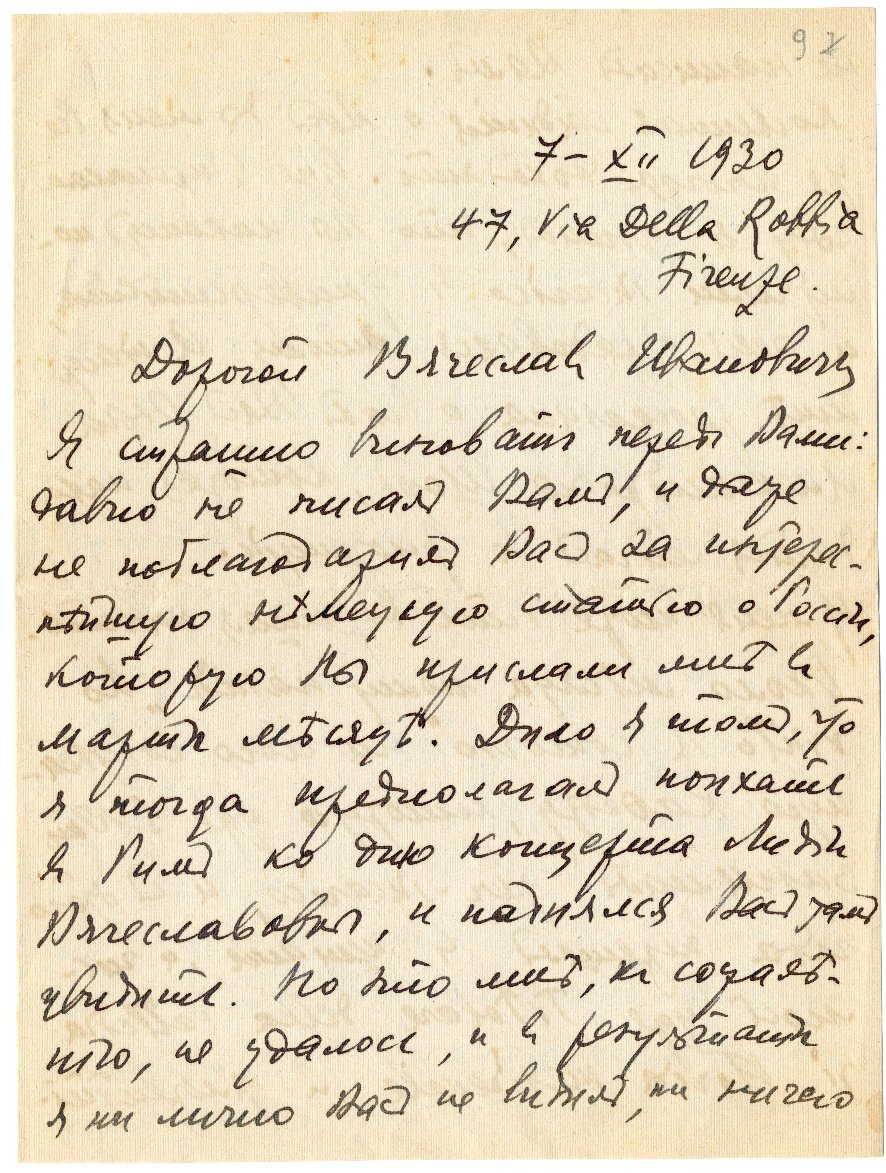 92
7-XII 1930
47, Via Della Robbia
Firenze.
Дорогой Вячеславъ Ивановичъ
Я страшно виноватъ передъ Вами:
давно не писалъ Вамъ, и даже
не поблагодарилъ Васъ за интерес-
нѣйшую нѣмецкую статью о Россіи,
которую Вы прислали мнѣ въ
мартѣ мѣсяцѣ. Дѣло въ томъ, что
я тогда предполагалъ поѣхать
въ Римъ ко дню концерта Лидіи
Вячеславовны, и надѣялся Васъ тамъ
увидѣть. Но это мнѣ, къ сожалѣ-
нію, не удалось, и въ результатѣ
я ни лично Васъ не видѣлъ, ни ничего